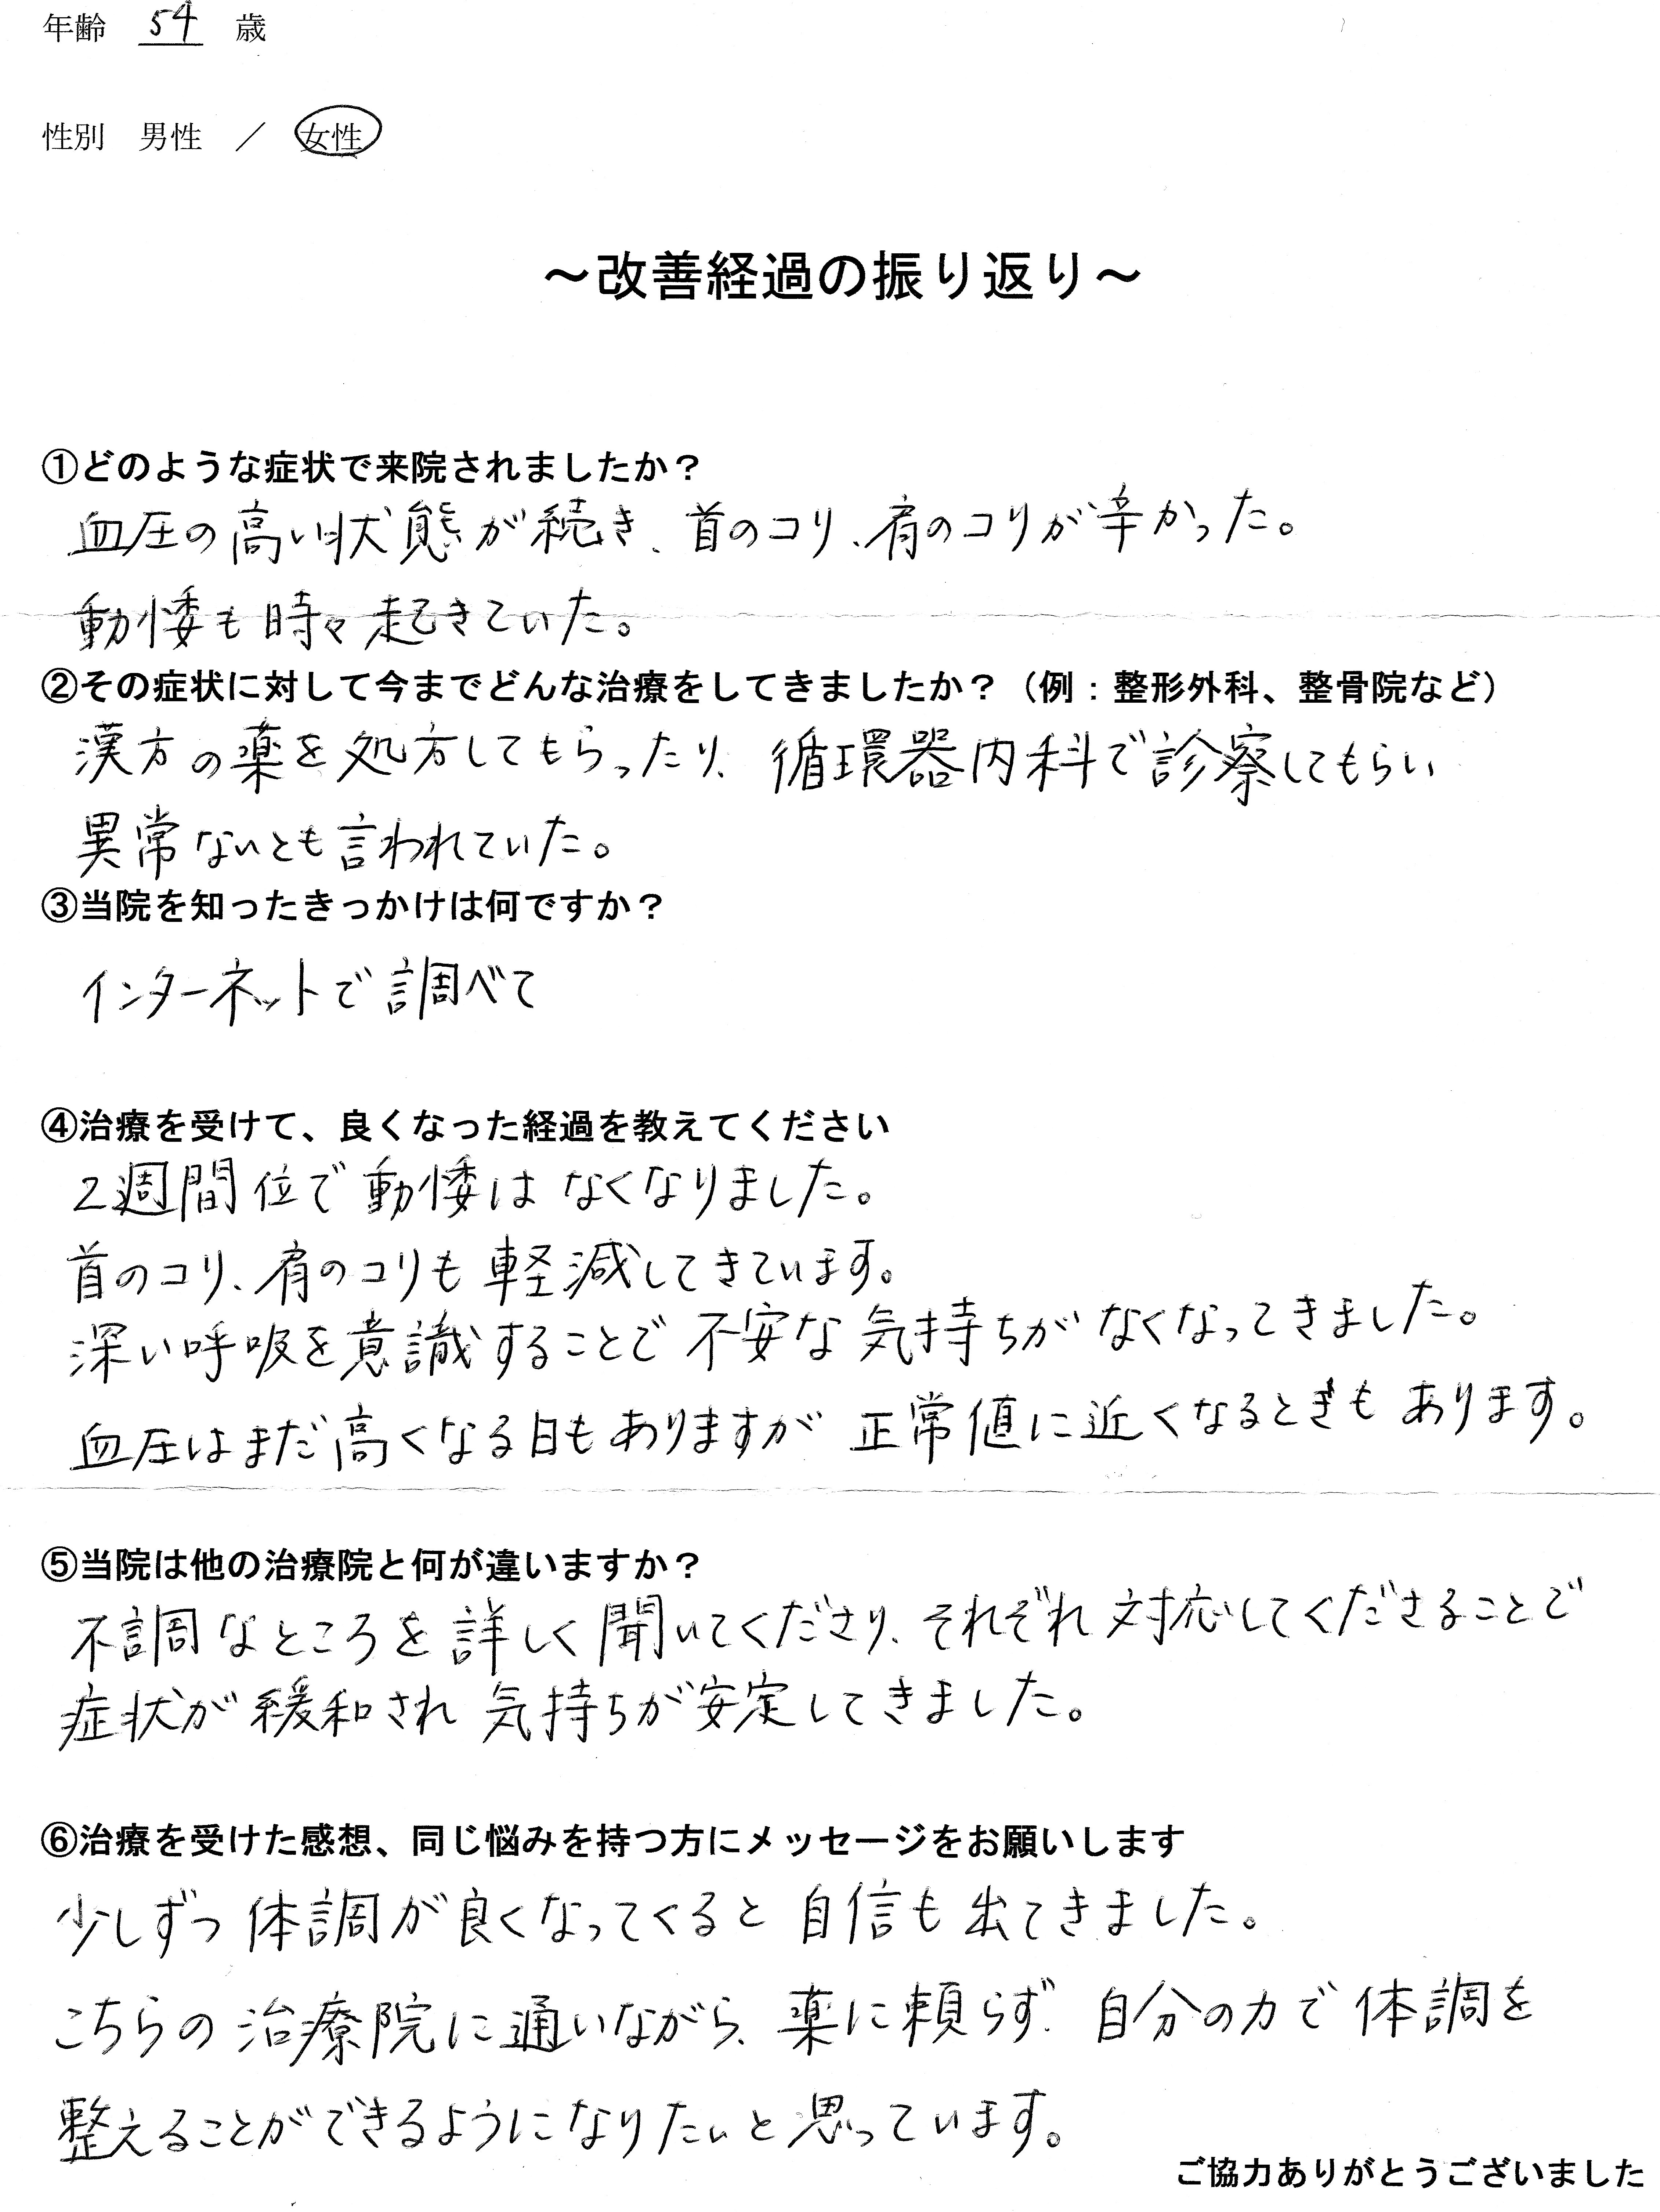 年齢 54 歳
性別 男性 ／ 女性
～改善経過の振り返り～
①どのような症状で来院されましたか？
血圧の高い状態が続き、首のコリ、肩のコリが辛かった。
動悸も時々起きていた。
②その症状に対して今までどんな治療をしてきましたか？（例：整形外科、整骨院など）
漢方の薬を処方してもらったり、循環器内科で診察してもらい
異常ないとも言われていた。
③当院を知ったきっかけは何ですか？
インターネットで調べて
④治療を受けて、良くなった経過を教えてください
2週間位で動悸はなくなりました。
首のコリ、肩のコリも軽減してきています。
深い呼吸を意識することで不安な気持ちがなくなってきました。
血圧はまだ高くなる日もありますが正常値に近くなるときもあります。
⑤当院は他の治療院と何が違いますか？
不調なところを詳しく聞いてくださり、それぞれ対応してくださることで
症状が緩和され気持ちが安定してきました。
⑥治療を受けた感想、同じ悩みを持つ方にメッセージをお願いします
少しずつ体調が良くなってくると自信も出てきました。
こちらの治療院に通いながら、薬に頼らず、自分の力で体調を
整えることができるようになりたいと思っています。
ご協力ありがとうございました